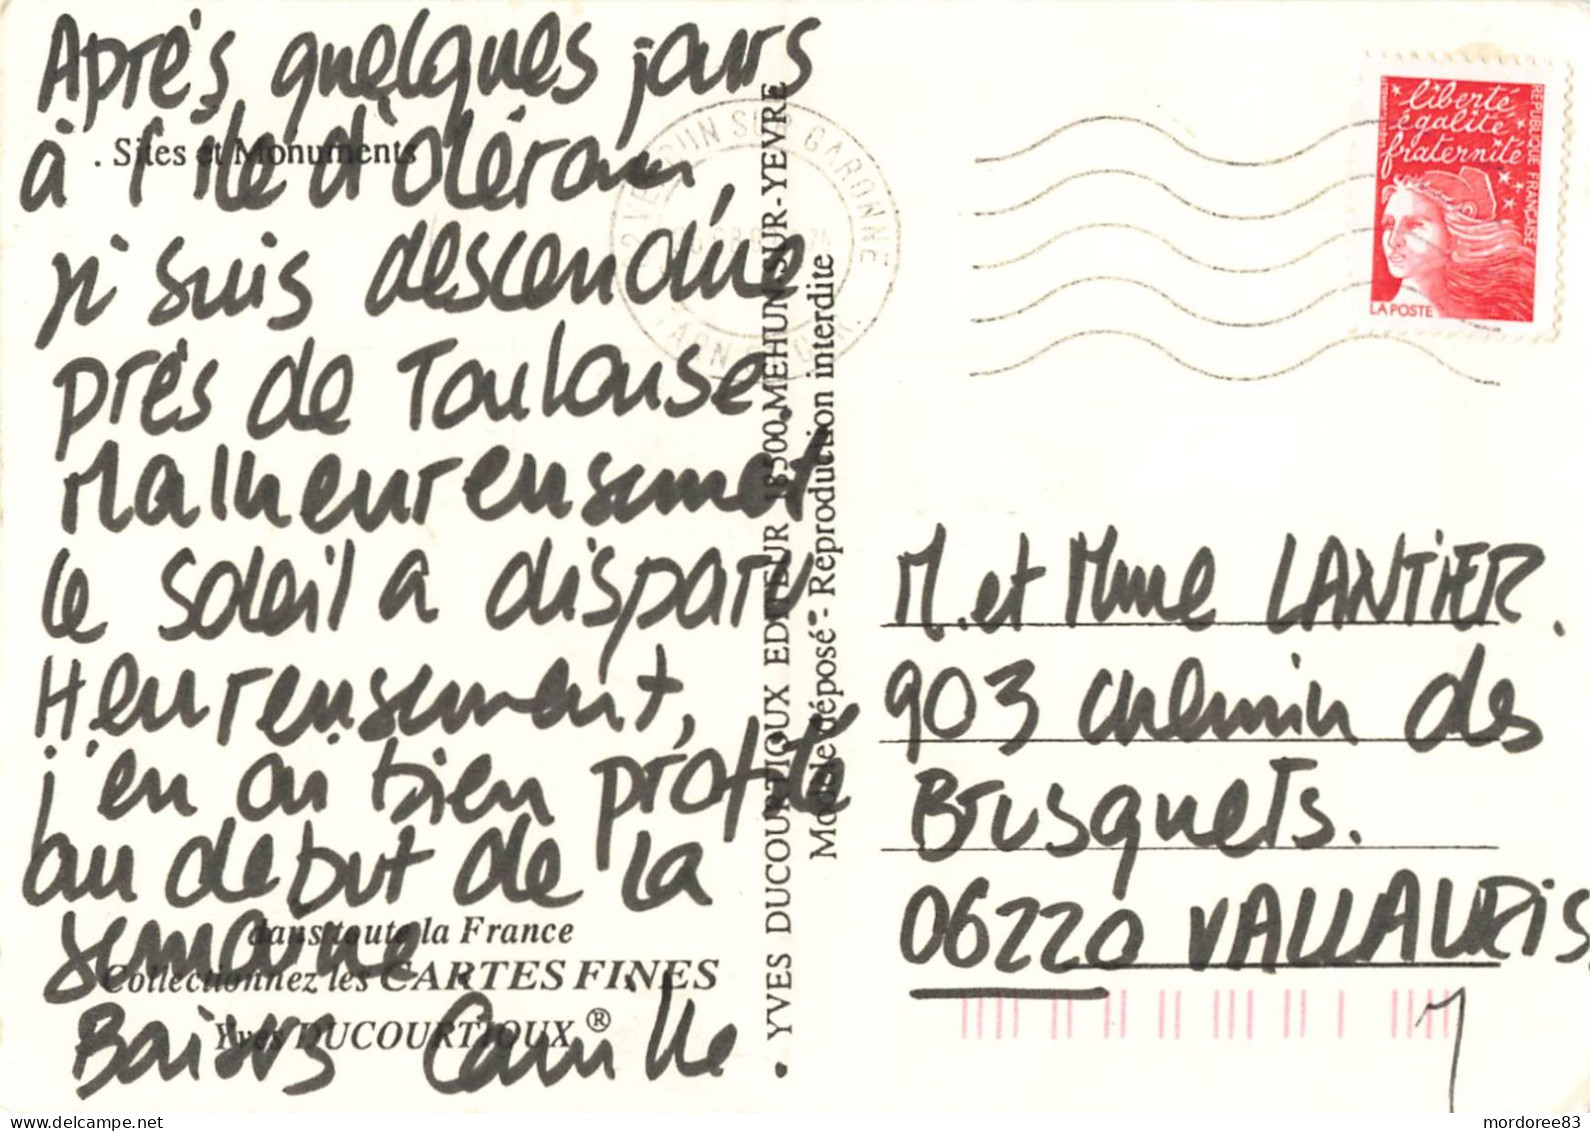 Après quelques jours
à l'île d'oléron,
je suis descendue
près de Toulouse.
Malheureusement
le soleil a disparu
Heureusement,
j'en ai bien profité
au début de la
semaine
Baisers Camille.
. Sites et Monuments
dans toute la France
Collectionnez les CARTES FINES
Yves DUCOURTIOUX ®
. YVES DUCOURTIOUX EDITEUR 18500 MEHUN-SUR-YEVRE
Modèle déposé - Reproduction interdite
VERDUN SUR GARONNE
TARN
liberté
égalité
fraternité
RÉPUBLIQUE FRANÇAISE
LA POSTE
M. et Mme LANTIER.
903 chemin des
Brusquets.
06220 VALLAURIS
mordoree83